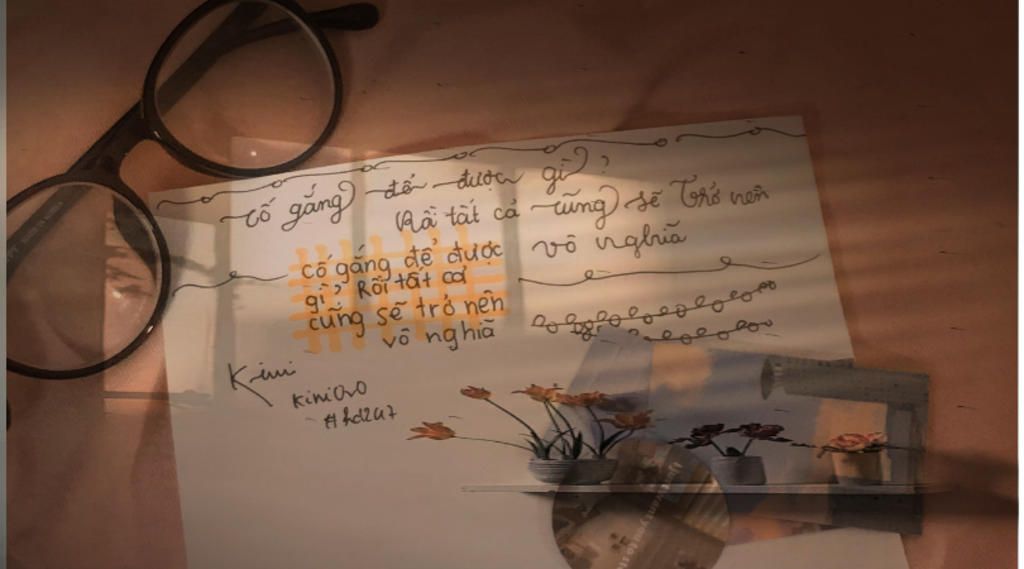 cố gắng để được gì?
Rồi tất cả cũng sẽ trở nên
vô nghĩa
cố gắng để được
gì, Rồi tất cả
cũng sẽ trở nên
vô nghĩa
Kimi
kimiovo
#hd2a7